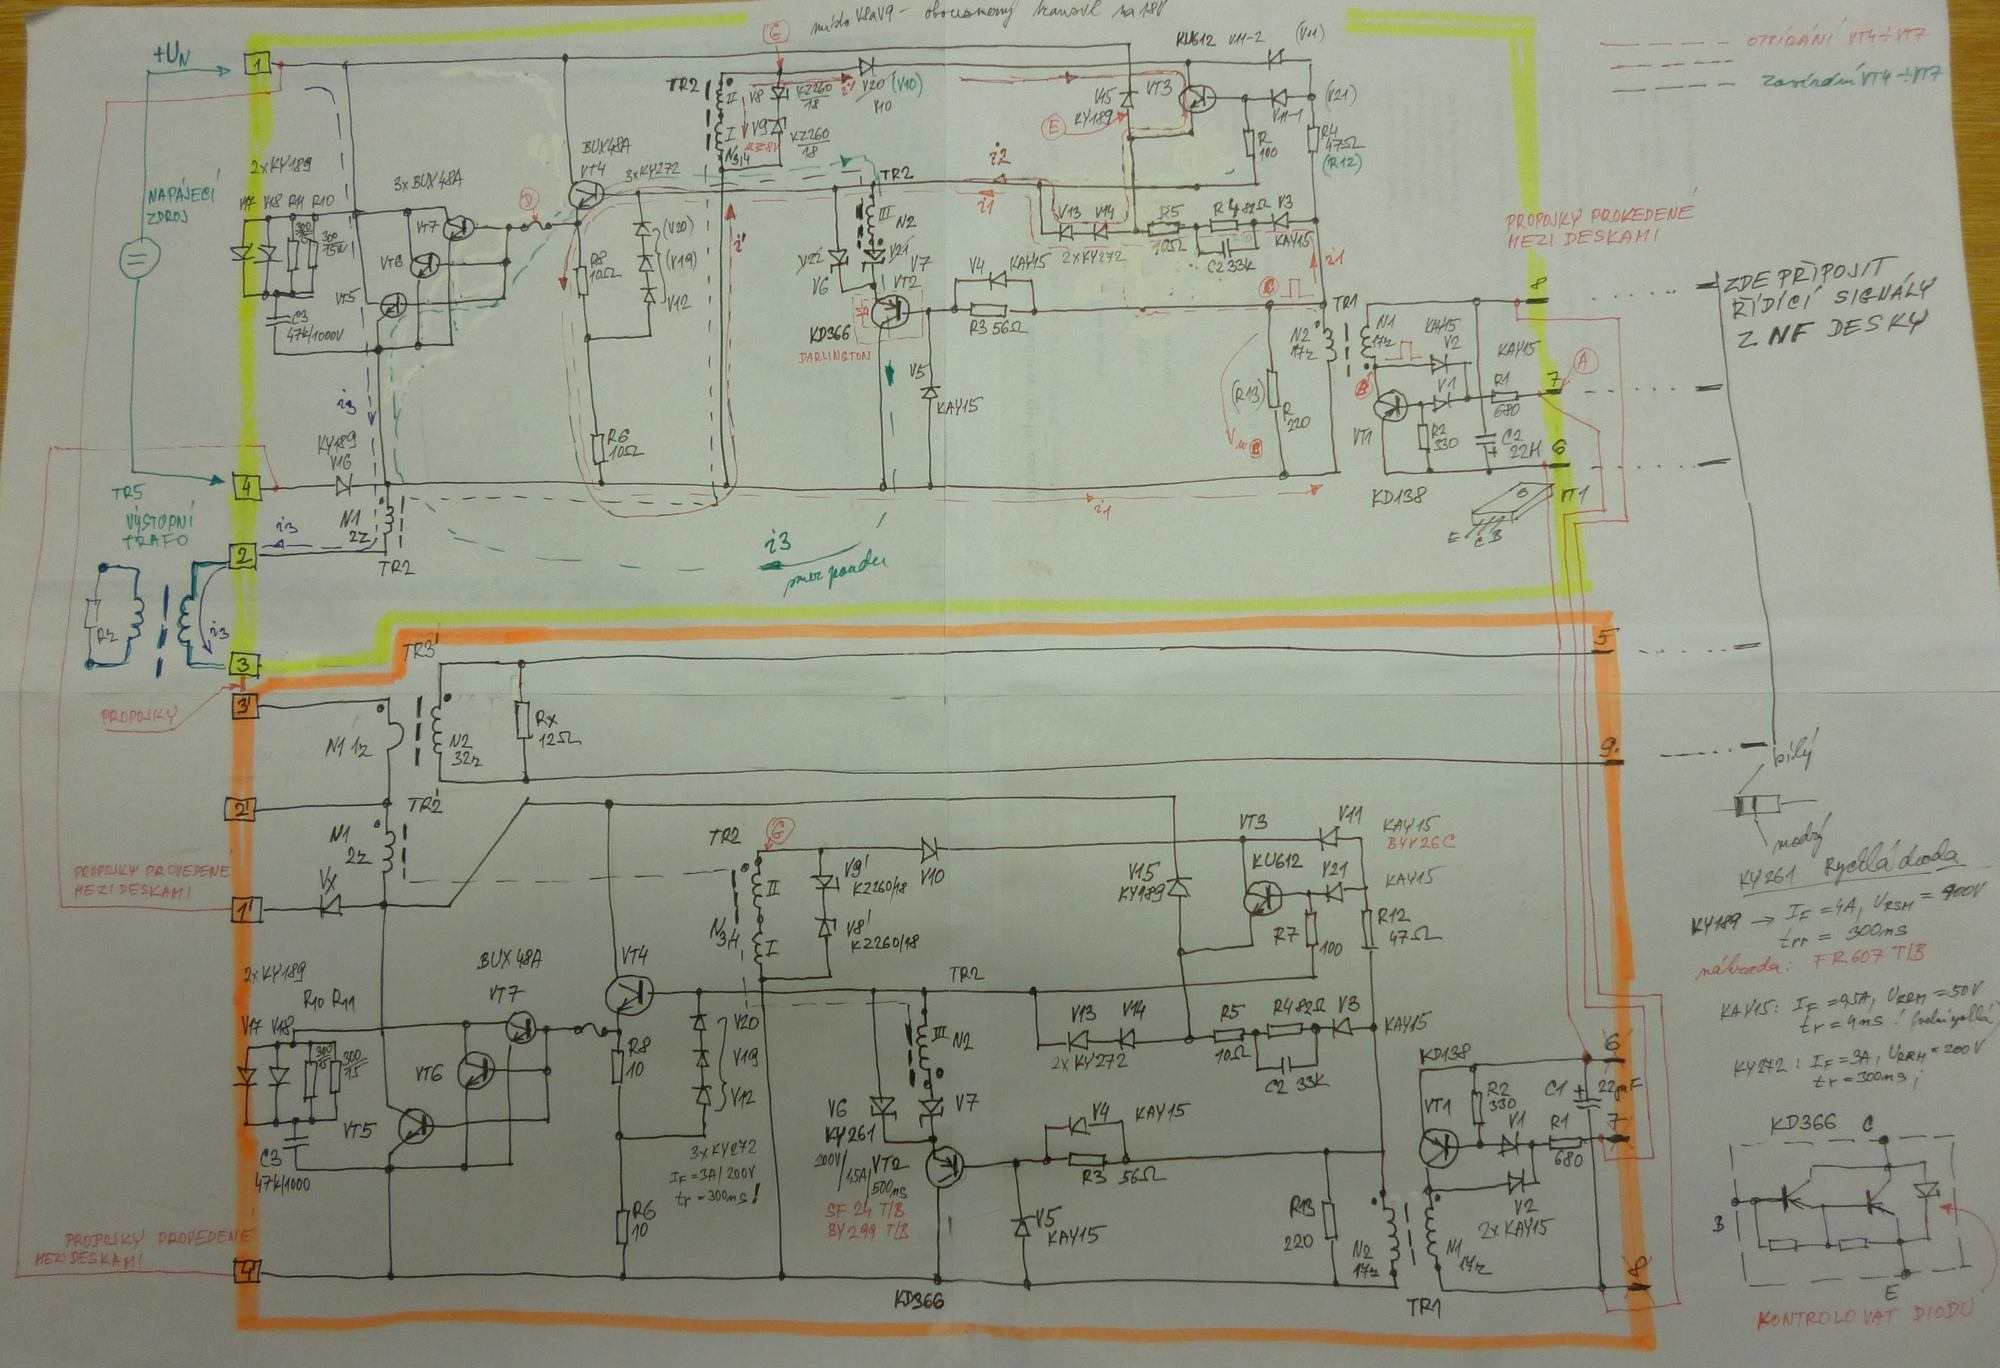 místo V8aV9 - obousměrný transil na 18V
OTVÍRÁNÍ VT4÷VT7
Zavírání VT4÷VT7
+UN
NAPÁJECÍ
ZDROJ
1
4
2
3
TR5
VÝSTUPNÍ
TRAFO
RZ
i3
2xKY189
V17 V18 R11 R10
C3
47k/1000V
3xBUX48A
VT7
VT6
VT5
D
BUX48A
VT4
3xKY272
(V20)
(V19)
V12
R8
10Ω
R6
10Ω
i3
KY189
V16
N1
2z
TR2
i3
G
TR2
II
I
N3/4
V8
KZ260/18
V9
KZ260/18
V20 (V10)
V10
i'
i3
TR2
III
N2
V22
V6
V21
V7
VT2
KD366
DARLINGTON
V5
KAY15
V4
KAY15
R3 56Ω
V15
KY189
E
VT3
KU612 V11-2
(V11)
V11-1
(V21)
R
100
R4
47Ω
(R12)
i2
i1
V13 V14
2xKY272
R5
10Ω
R4 82Ω
C2 33k
V3
KAY15
i1
TR1
N2
17z
N1
17z
(R13)
R
220
B
KAY15
V2
V1
KAY15
R1
680
R2
330
VT1
C2
22M
KD138
VT1
E C B
8
7
A
6
PROPOJKY PROVEDENÉ
MEZI DESKAMI
ZDE PŘIPOJIT
ŘÍDÍCÍ SIGNÁLY
Z NF DESKY
i1
i3
směr proudu
PROPOJKY
3'
2'
1'
4'
TR3'
N1 1z
N2
32z
RX
12Ω
5
9
TR2'
N1
2z
VX
PROPOJKY PROVEDENÉ
MEZI DESKAMI
TR2
G
II
I
N3/4
V9'
KZ260/18
V8'
KZ260/18
V10
V15
KY189
VT3
KU612
V11
KAY15
BYV26C
V21
KAY15
R7
100
R12
47Ω
2xKY189
V17 V18
R10 R11
300/15
300/15
C3
47k/1000
BUX48A
VT7
VT6
VT5
VT4
R8
10
R6
10
V20
V19
V12
3xKY272
IF=3A/200V
tr=300ns!
TR2
III
N2
V6
KY261
V7
200V/15A/500ns
VT2
SF 24 T/B
BY299 T/B
KD366
V13 V14
2xKY272
R5
10Ω
R4 82Ω
C2 33K
V3
KAY15
V4
KAY15
R3 56Ω
V5
KAY15
R13
220
N2
17z
N1
17z
TR1
KD138
VT1
R2
330
V1
R1
680
V2
2xKAY15
C1
22µF
6
7
8
PROPOJKY PROVEDENÉ
MEZI DESKAMI
bílý
modrý
KY261 Rychlá dioda
KY189 → IF=4A, URSM=900V
trr = 300ns
náhrada: FR607 T/B
KAY15: IF=0,5A, URRM=50V
tr=4ns!
KY272: IF=3A, URRM=200V
tr=300ns;
KD366 C
B
E
KONTROLOVAT DIODU